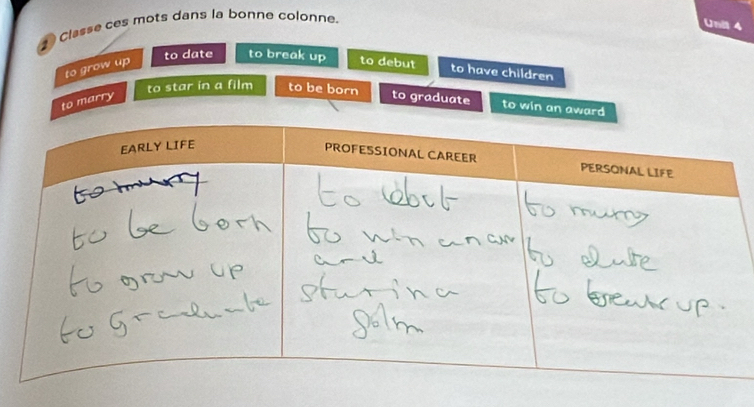 2 Classe ces mots dans la bonne colonne.
Unit 4
to grow up to date to break up to debut to have children
to marry to star in a film to be born to graduate to win an award
EARLY LIFE PROFESSIONAL CAREER PERSONAL LIFE
to murry to debut to murry
to be born to win an aw to dute
ard
to grow up sturina to breakup.
to Graduate